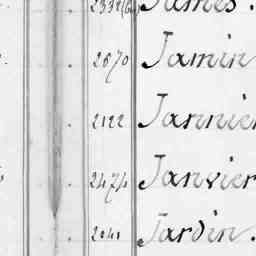 James.
2670 Jamin
2122 Jannier
2474 Janvier
2041 Jardin.